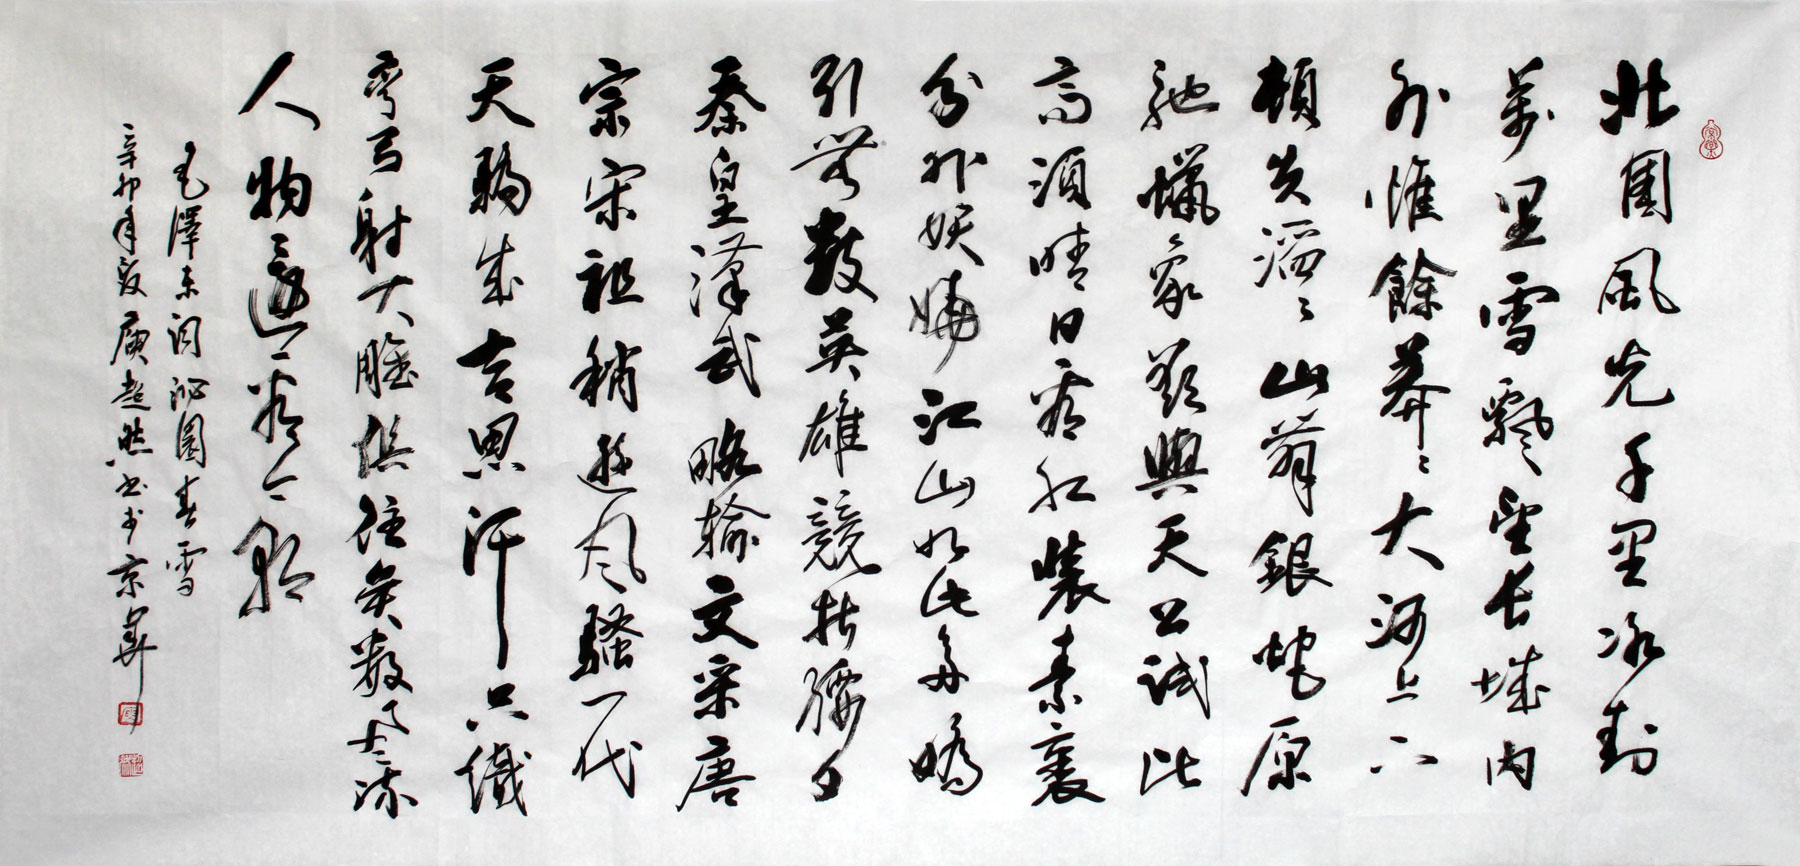 北國風光千里冰封
萬里雪飄望長城内
外惟餘莽〻大河上下
頓失滔〻山舞銀蛇原
馳蠟象欲與天公試比
高須晴日看红裝素裹
分外妖嬈江山如此多嬌
引無數英雄競折腰惜
秦皇漢武略輸文采唐
宗宋祖稍遜風騷一代
天驕成吉思汗只識
彎弓射大雕俱往矣數風流
人物還看今朝
毛澤東詞沁園春雪
辛卯年夏超然书於京華